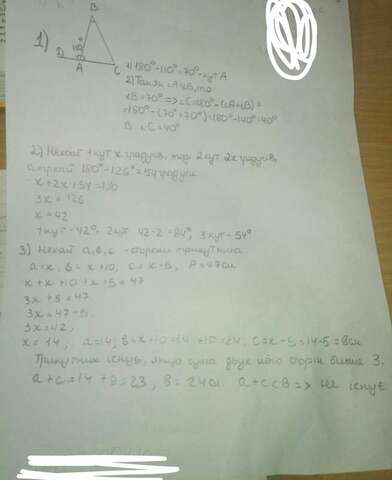 1)
B
110°
D
A
C
1) 180°-110°=70°-кут A
2) Так як ∠A=∠B, то
∠B=70° => ∠C=180°-(∠A+∠B)=
=180°-(70°+70°)=180°-140°=40°
В. ∠C=40°
2) Нехай 1 кут x градусів, тоді 2 кут 2x градусів,
а третій 180°-126°=54 градуси
x+2x+54=180
3x=126
x=42
1 кут-42°, 2 кут 42·2=84°, 3 кут-54°
3) Нехай a, b, c - сторони трикутника
a=x, b=x+10, c=x-5, P=47см
x+x+10+x-5=47
3x+5=47
3x=47-5
3x=42,
x=14, a=14, b=x+10=14+10=24, c=x-5=14-5=9см
Трикутник існує, якщо сума двух його сторін більше 3.
a+c=14+9=23, b=24см. a+c<b => не існує